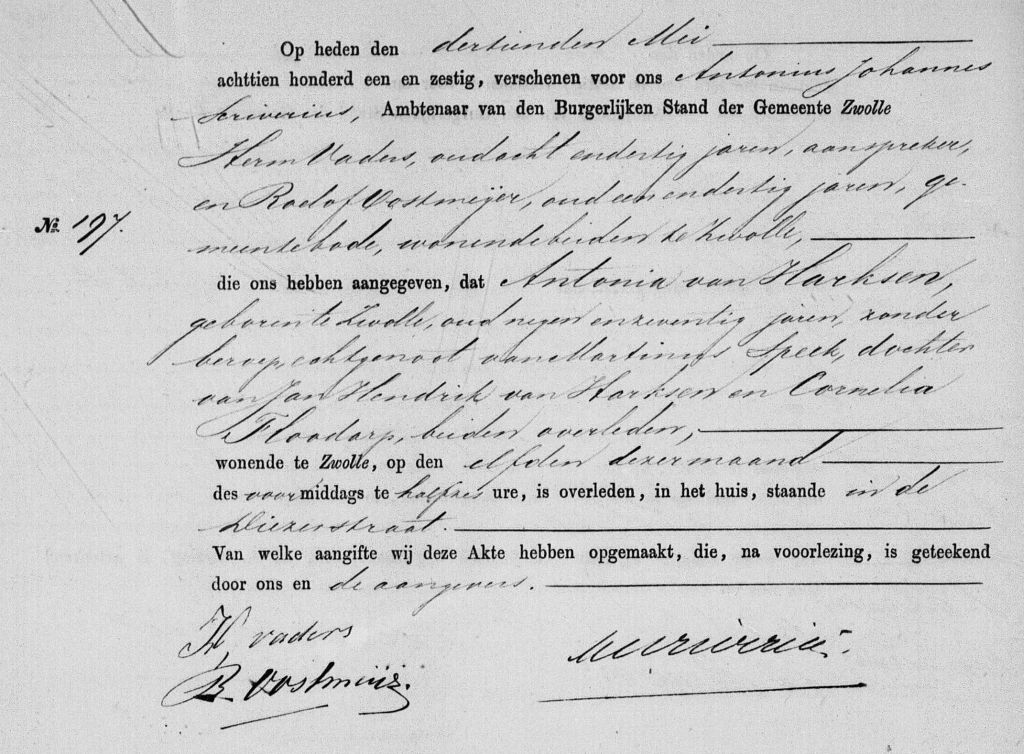 Op heden den dertienden Mei
achttien honderd een en zestig, verschenen voor ons Antonius Johannes
Scriverius, Ambtenaar van den Burgerlijken Stand der Gemeente Zwolle
Herm Vaders, oud acht en dertig jaren, aanspreker,
en Roelof Oostmeijer, oud een en dertig jaren, ge-
No. 197.
meentebode, wonende beiden te Zwolle,
die ons hebben aangegeven, dat Antonia van Harksen,
geboren te Zwolle, oud negen en zeventig jaren, zonder
beroep, echtgenoot van Martinus Speek, dochter
van Jan Hendrik van Harksen en Cornelia
Floodorp, beiden overleden,
wonende te Zwolle, op den elfden dezer maand
des voormiddags te half zes ure, is overleden, in het huis, staande in de
Diezerstraat.
Van welke aangifte wij deze Akte hebben opgemaakt, die, na vooorlezing, is geteekend
door ons en de aangevers.
H, vaders